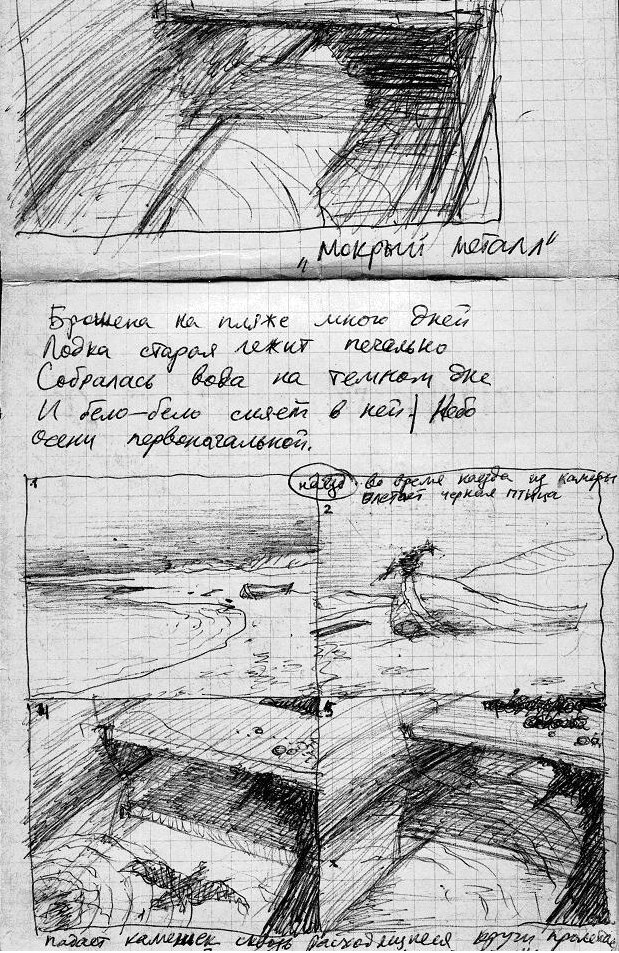 "Мокрый металл"
Брошена на пляже много дней
Лодка старая лежит печально
Собралась вода на темном дне
И бело-бело сияет в ней | Небо
осени первоначальной.
1
наезд во время наезда из камеры
влетает черная птица
2
4
5
падает камешек сквозь расходящиеся круги